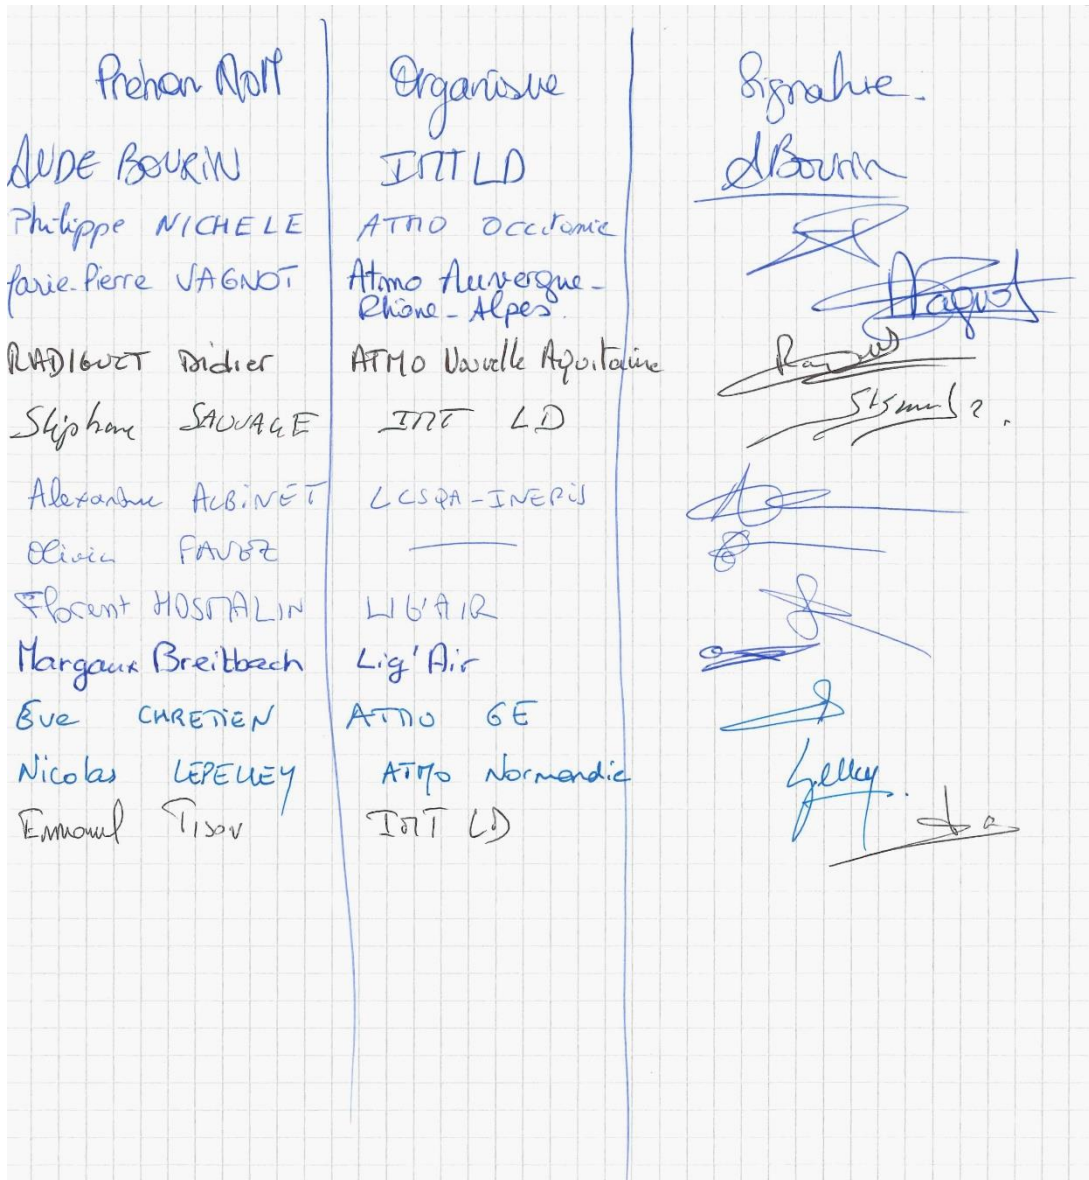 Prénom Nom Organisme Signature.
AUDE BOURIN IMT LD ABourin
Philippe NICHELE ATMO Occitanie
Marie-Pierre VAGNOT Atmo Auvergne-
Rhône-Alpes. Vagnot
RADIGUET Didier ATMO Nouvelle Aquitaine
Stéphane SAUVAGE IMT LD
Alexandre ALBINET LCSQA-INERIS
Olivier FAVEZ
Florent HOSMALIN LIG'AIR
Margaux Breitbach Lig'Air
Eve CHRETIEN ATMO GE
Nicolas LEPELLEY ATMO Normandie
IMT LD